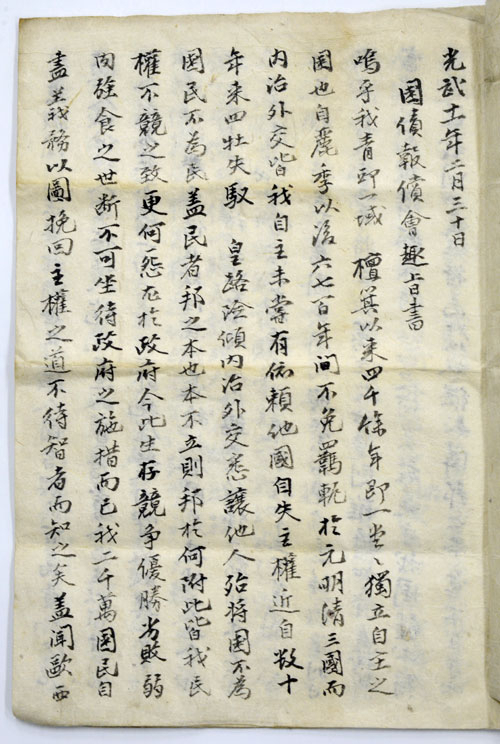 光武十一年二月三十日
國債報償會趣旨書
嗚乎我青邱一域 檀箕以來四千餘年即一堂〻獨立自主之
國也自麗季以後六七百年间不免羈軛於元明清三國而
内治外交皆我自主未嘗有依賴他國自失主權近自数十
年來四牡失馭 皇路險傾内治外交悉讓他人殆将國不為
國民不為民盖民者邦之本也本不立則邦於何附此皆我民
權不競之致更何怨尤於政府今此生存競争優勝劣敗弱
肉強食之世断不可坐待政府之施措而已我二千萬國民自
盡義務以圖挽回主權之道不待智者而知之矣盖聞歐西